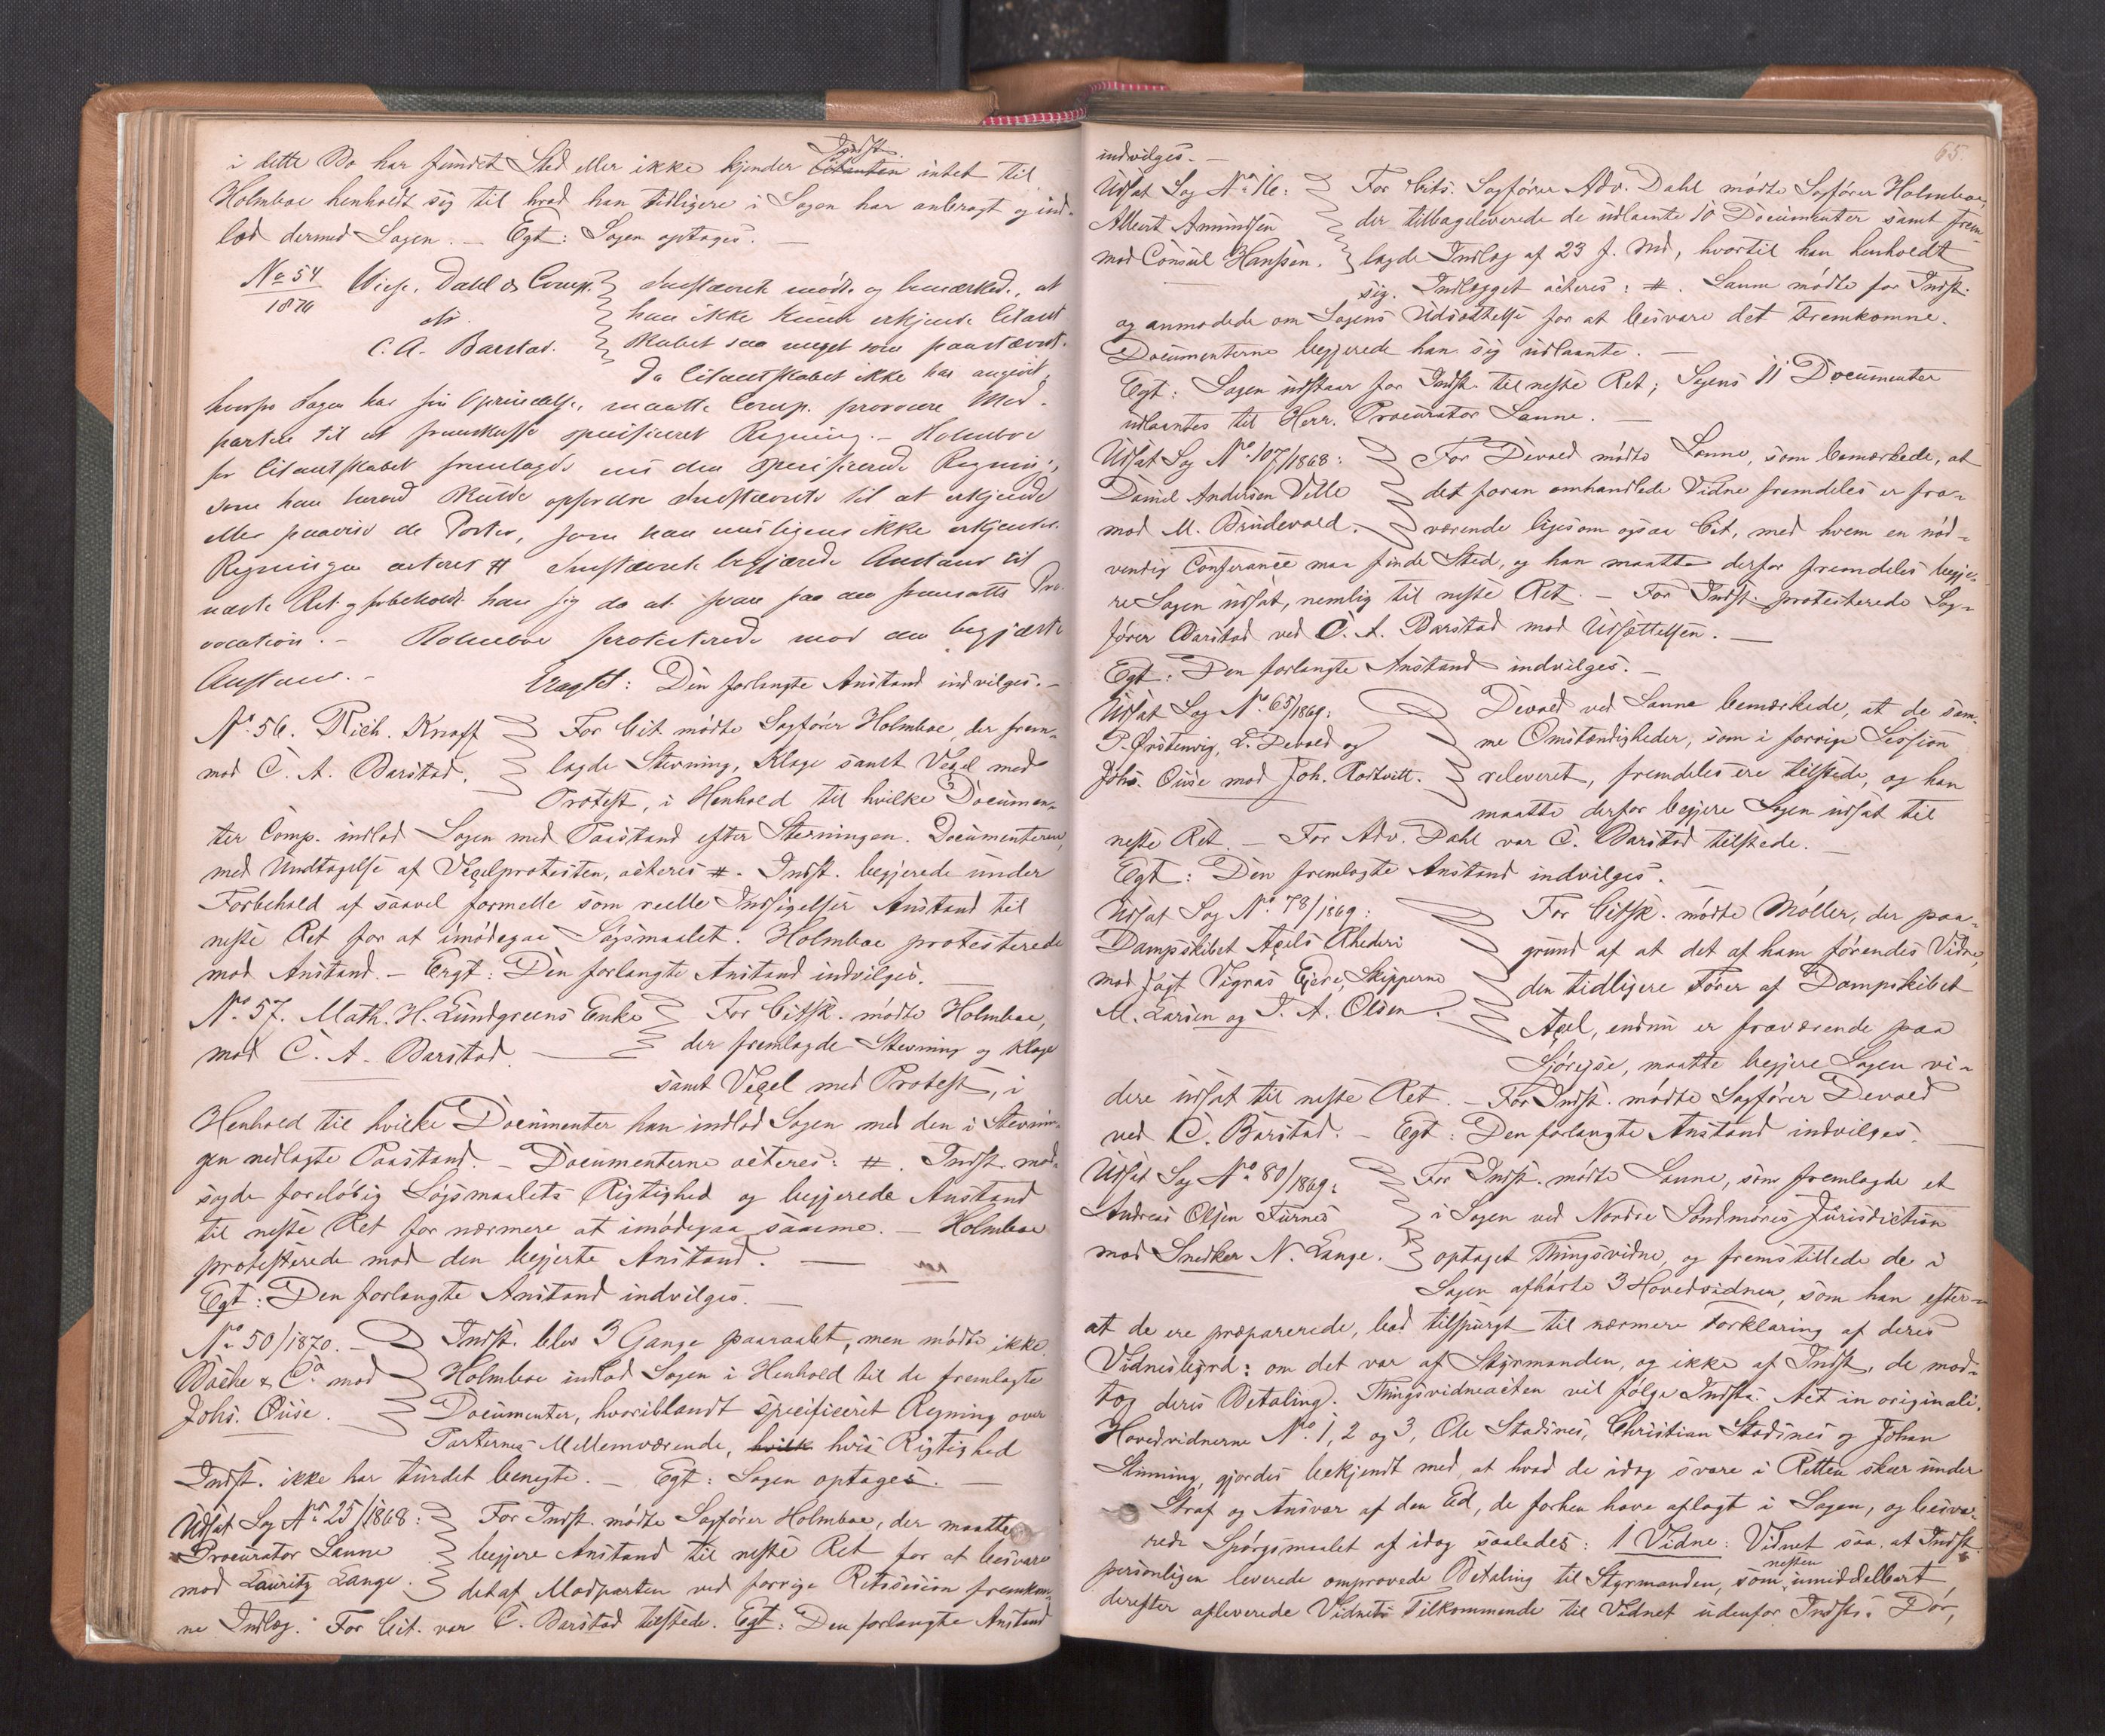 i dette Bo har fundet Sted eller ikke kjender Indst. intet til
Holmboe henholdt sig til hvad han tidligere i Sagen har anbragt og ind-
lod dermed Sagen. — Egt: Sagen optages. —
No 54 Wiese, Dahl & Comp. Indstævnte mødte og bemærkede, at
1870 han ikke kunde erkjende Citant
C. A. Barstad. skabet saa meget som paastævnt.
Da Citantskabet ikke har angivet,
hvorfra Sagen har sin Oprindelse, maatte Comp. provocere Mod-
parten til at fremskaffe specificeret Regning. — Holmboe
for Citantskabet fremlagde nu den specificerede Regning,
som han herved skulde opfordre Indstævnte til at erkjende
eller paavise de Poster, som han muligens ikke erkjender.
Regningen acteres # Indstævnte begjærede Anstand til
næste Ret og forbeholdt han sig da at svare paa den fremsatte Pro-
vocation. — Holmboe protesterede mod den begjærte
Anstand. — Eragtet: Den forlangte Anstand indvilges. —
No. 56. Rich. Knoff For Cit. mødte Sagfører Holmboe, der frem-
mod C. A. Barstad. lagde Stevning, Klage samt Vexel med
Protest, i Henhold til hvilke Documen-
ter Comp. indlod Sagen med Paastand efter Stevningen. Documenterne,
med Undtagelse af Vexelprotesten, acteres #. Indst. begjerede under
Forbehold af saavel formelle som reelle Indsigelser Anstand til
neste Ret for at imødegaa Søgsmaalet. Holmboe protesterede
mod Anstand. — Eragt: Den forlangte Anstand indvilges. —
No. 57. Math. H. Lundgreens Enke For Citsk. mødte Holmboe,
mod C. A. Barstad. der fremlagde Stevning og Klage
samt Vexel med Protest, i
Henhold til hvilke Documenter han indlod Sagen med den i Stevnin-
gen nedlagte Paastand. — Documenterne acteres: #. Indst. mod-
sagde foreløbig Søgsmaalets Rigtighed og begjerede Anstand
til neste Ret for nærmere at imødegaa samme. — Holmboe
protesterede mod den begjerte Anstand. —
Egt: Den forlangte Anstand indvilges. —
No. 50/1870. — Indst. blev 3 Gange paaraabt, men mødte ikke.
Bache & Co. mod Holmboe indlod Sagen i Henhold til de fremlagte
Johs. Ouse. Documenter, hvoriblandt specificeret Regning over
Parternes Mellemværende, hvilk hvis Rigtighed
Indst. ikke har turdet benegte. — Egt: Sagen optages. —
Udsat Sag No. 25/1868: For Indst. mødte Sagfører Holmboe, der maatte
Procurator Sanne begjere Anstand til neste Ret for at besvare
mod Lauritz Lange. det af Modparten ved forrige Retssession fremkom-
ne Indlæg. For Cit. var C. Barstad tilstede. Egt: Den forlangte Anstand
65.
indvilges. —
Udsat Sag No. 16: For Cits. Sagfører Adv. Dahl mødte Sagfører Holmboe,
Albert Amundsen der tilbageleverede de udlaante 10 Documenter samt frem-
mod Consul Hanssen. lagde Indlæg af 23 f. Md, hvortil han henholdt
sig. Indlægget acteres: #. Sanne mødte for Indst.
og anmodede om Sagens Udsættelse for at besvare det Fremkomne.
Documenterne begjerede han sig udlaante. —
Egt: Sagen udstaar for Indst. til neste Ret; Sagens 11 Documenter
udlaantes til Herr. Procurator Sanne. —
Udsat Sag No. 107/1868: For Devold mødte Sanne, som bemærkede, at
Daniel Andersen Velle det foran omhandlede Vidne fremdeles er fra-
mod M. Brudevold. værende ligesom ogsaa Cit, med hvem en nød-
vendig Conferance maa finde Sted, og han maatte derfor fremdeles begje-
re Sagen udsat, nemlig til neste Ret. — For Indst. protesterede Sag-
fører Barstad ved C. A. Barstad mod Udsættelsen. —
Egt: Den forlangte Anstand indvilges. —
Udsat Sag No. 65/1869: Devold ved Sanne bemærkede, at de sam-
P. Ørstenvig, L. Devold og me Omstændigheder, som i forrige Session
Johs. Ouse mod Joh. Rostvitt. releveret, fremdeles ere tilstede, og han
maatte derfor begjere Sagen udsat til
neste Ret. — For Adv. Dahl var C. Barstad tilstede. —
Egt: Den fremlagte Anstand indvilges. —
Udsat Sag No. 78/1869: For Citsk. mødte Møller, der paa-
Dampskibet Axels Rhederi grund af at det af ham førendes Vidne,
mod Jagt Vigras Ejere, Skipperne den tidligere Fører af Dampskibet
M. Larsen og J. A. Olsen. Axel, endnu er fraværende paa
Sjørejse, maatte begjere Sagen vi-
dere udsat til neste Ret. — For Indst. mødte Sagfører Devold
ved C. Barstad. — Egt: Den forlangte Anstand indvilges. —
Udsat Sag No. 80/1869: For Indst. mødte Sanne, som fremlagde et
Andreas Olsen Furnes i Sagen ved Nordre Søndmøres Jurisdiction
mod Snedker N. Lange. optaget Thingsvidne, og fremstillede de i
Sagen afhørte 3 Hovedvidner, som han efter-
at de ere præparerede, bad tilspurgt til nærmere Forklaring af deres
Vidnesbyrd: om det var af Styrmanden, og ikke af Indst, de mod-
tog deres Betaling. Thingsvidneacten vil følge Indsts. Act in originali.
Hovedvidnerne No. 1, 2 og 3, Ole Stadsnes, Christian Stadsnes og Johan
Slinning, gjordes bekjendt med, at hvad de idag svare i Retten skeer under
Straf og Ansvar af den Ed, de forhen have aflagt i Sagen, og besva-
rede Spørgsmaalet af idag saaledes: 1 Vidne: Vidnet saa, at Indst.
personligen leverede omprovede Betaling til Styrmanden, som nesten umiddelbart
derefter afleverede Vidnets Tilkommende til Vidnet udenfor Indsts. Dør,